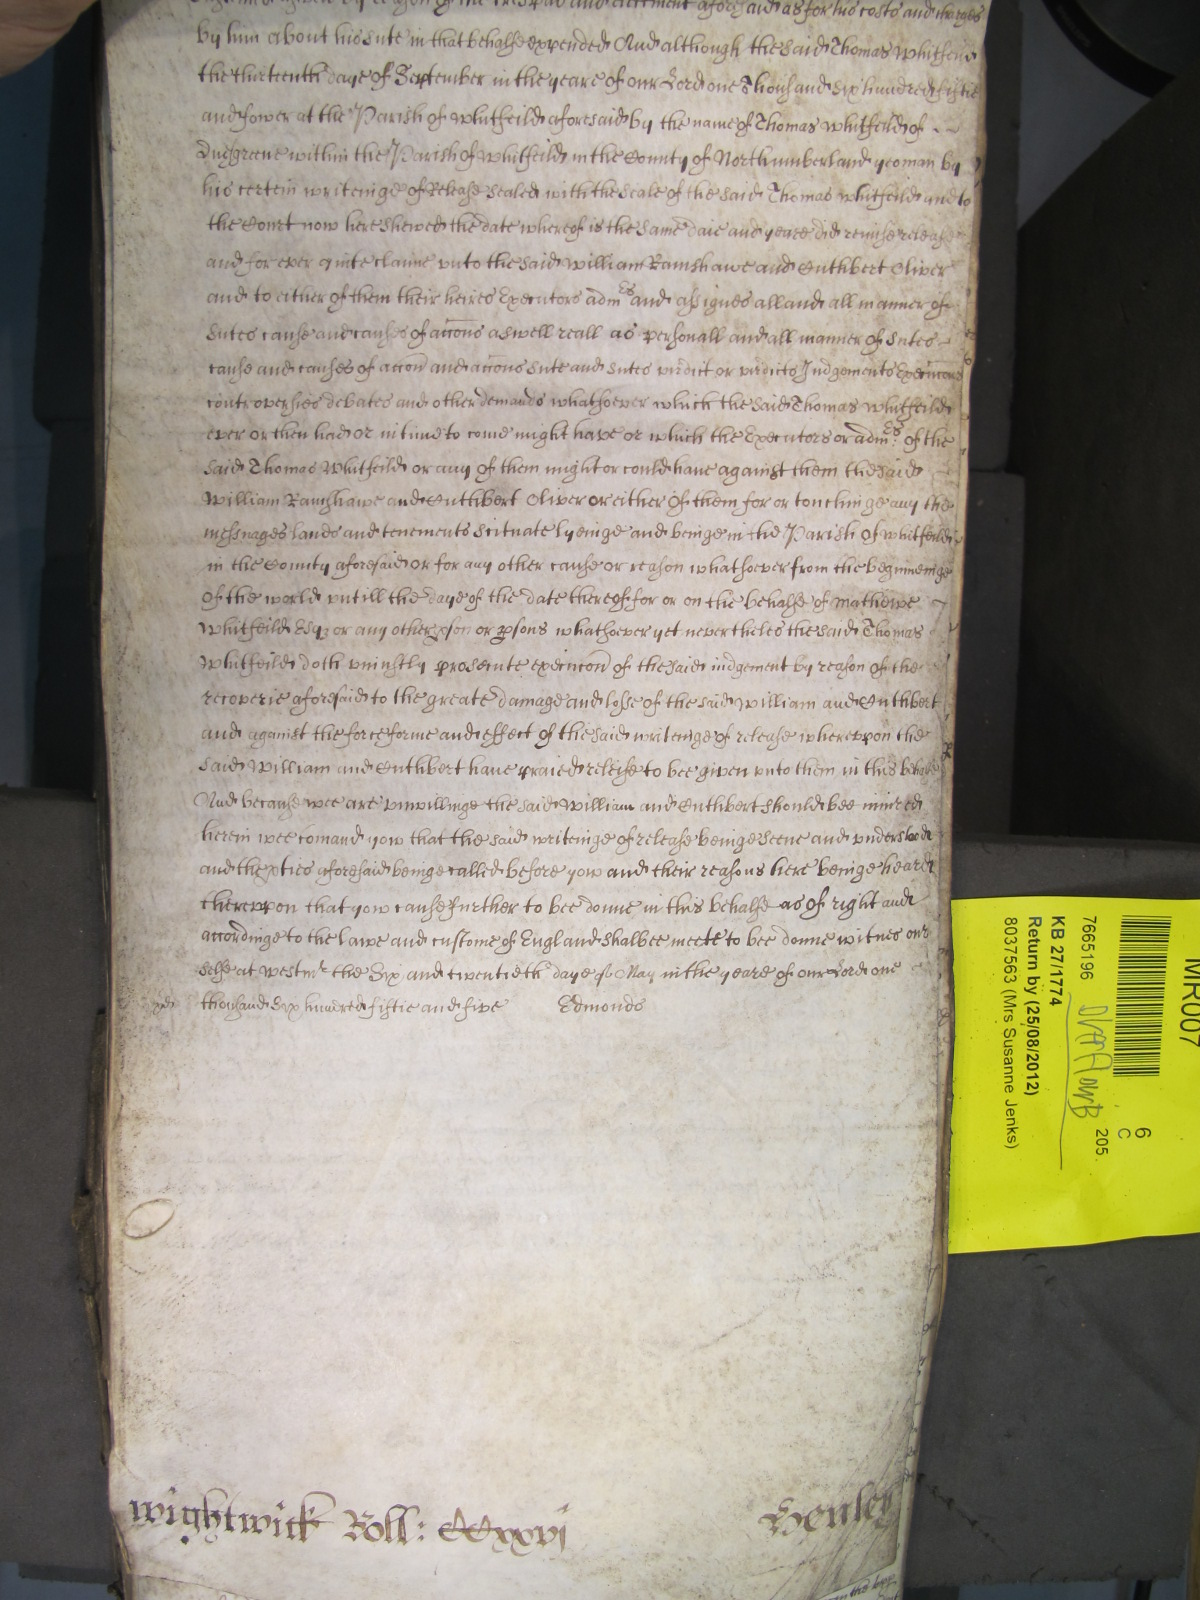 by reason of the trespas and eiectment aforesaid as for his costs and charges
by him about his sute in that behalfe expended And although the said Thomas Whitfeild
the thirteenth daye of September in the yeare of our Lord one Thousand six hundred fiftie
and fower at the Parish of Whitfeild aforesaid by the name of Thomas Whitfeild of
within the Parish of Whitfeild in the County of Northumberland yeoman by
his certein writeinge of Release sealed with the seale of the said Thomas Whitfeild and to
the Court now here shewed the date whereof is the same daie and yeare did remise release
and for ever quite claime unto the said William Ramshawe and Cuthbert Oliver
and to either of them their heires Executors adm:es and assignes all and all manner of
Sutes cause and causes of accons aswell reall as personall and all manner of sutes
cause and causes of accon and accons sute and sutes virdict or virdicts Judgements Execucons
controversies debates and other demands whatsoever which the said Thomas Whitfeild
ever or then had or in time to come might have or which the Executors or adm:es of the
said Thomas Whitfeild or any of them might or could have against them the said
William Ramshawe and Cuthbert Oliver or either of them for or touchinge any the
messuages lands and tenements scituate lyeinge and beinge in the Parish of Whitfeild
in the County aforesaid or for any other cause or reason whatsoever from the beginninge
of the world untill the daye of the date thereof for or on the behalfe of Mathewe
Whitfeild Esqr or any other pson or psons whatsoever yet nevertheles the said Thomas
Whitfeild doth uniustly prosecute execucon of the said iudgement by reason of the
recoverie aforesaid to the greate damage and losse of the said William and Cuthbert
and against the force forme and effect of the said writeinge of release whereupon the
said William and Cuthbert have praied releife to bee given unto them in this behalfe
And because wee are unwillinge the said William and Cuthbert should bee iniured
herein wee comand yow that the said writeinge of release beinge seene and understood
and the pties aforesaid beinge called before yow and their reasons here beinge heard
thereupon that yow cause further to bee donne in this behalfe as of right and
accordinge to the lawe and custome of England shalbee meete to bee donne witnes our
selfe at Westmr the Six and twentieth daye of May in the yeare of our Lord one
thousand Six hundred fiftie and five Edmonds
Wightwick Roll: CCxxvj Henley
MR007
7665196
KB 27/1774
Return by (25/08/2012)
8037563 (Mrs Susanne Jenks)
6
C
205.